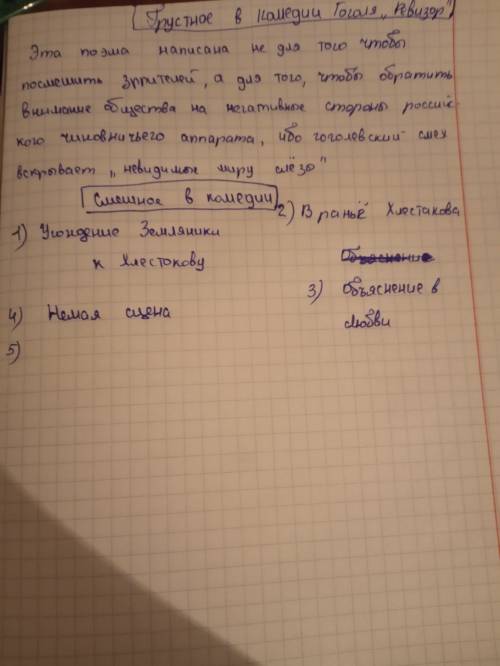 Грустное в комедии Гоголя „Ревизор"
Эта поэма написана не для того чтобы
посмешить зррителей, а для того, чтобы обратить
внимание общества на негативные стороны россий-
кого чиновничьего аппарата, ибо гоголевский смех
вскрывает „невидимые миру слёзы"
Смешное в комедии
2) Враньё Хлестакова
1) Угождение Земляники
к Хлестокову
Объяснение
3) Объяснение в
любви
4) Немая сцена
5)